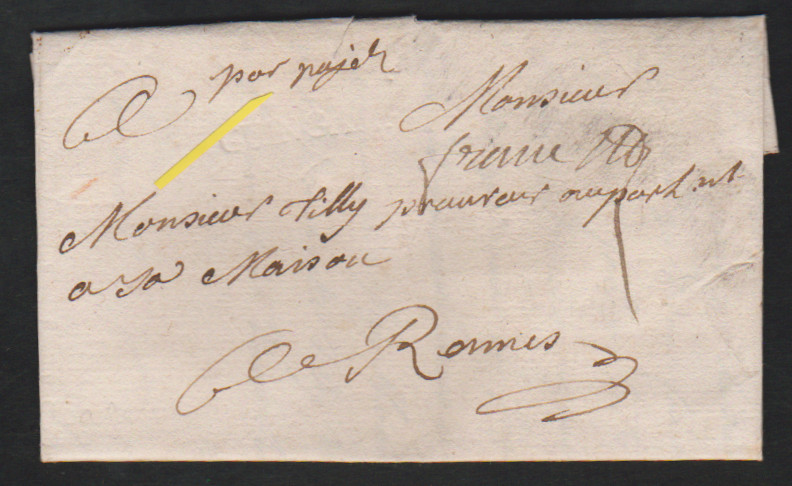 por pajeh
Monsieur
franc
Monsieur tilly procureur au parl
a sa Maison
a Rennes